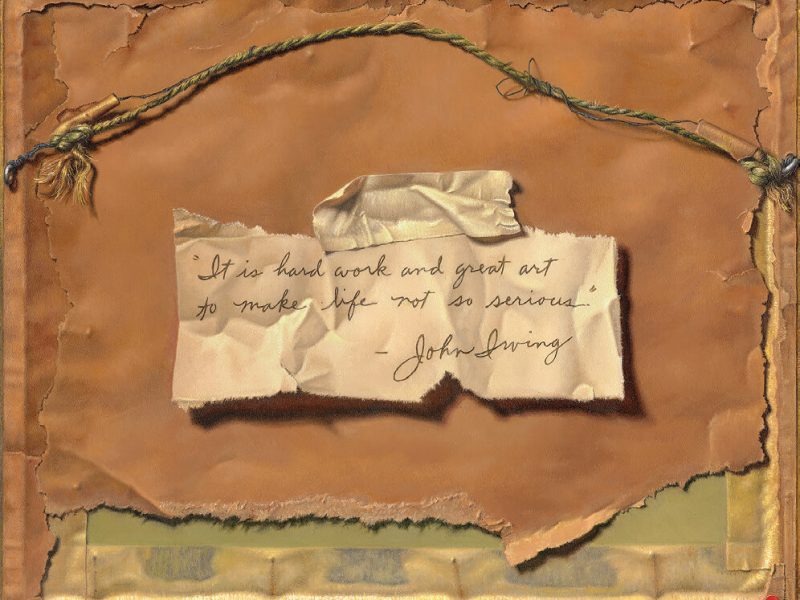 "It is hard work and great art
to make life not so serious."
- John Irving